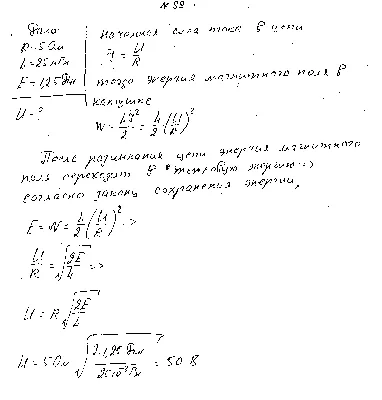 № 99
Дано
R=5 Ом
L=25 мГн
E=1,25 Дж
U=?
Начальная сила тока в цепи
I = U/R
тогда энергия магнитного поля в
катушке
W = LI²/2 = L/2 (U/R)²
После размыкания цепи энергия магнитного
поля переходит в тепловую энергию =>
согласно закону сохранения энергии,
E = W = L/2 (U/R)² =>
U/R = √(2E/L) =>
U = R √(2E/L)
U = 5 Ом √(2·1,25 Дж / 25·10⁻³ Гн) = 50 В